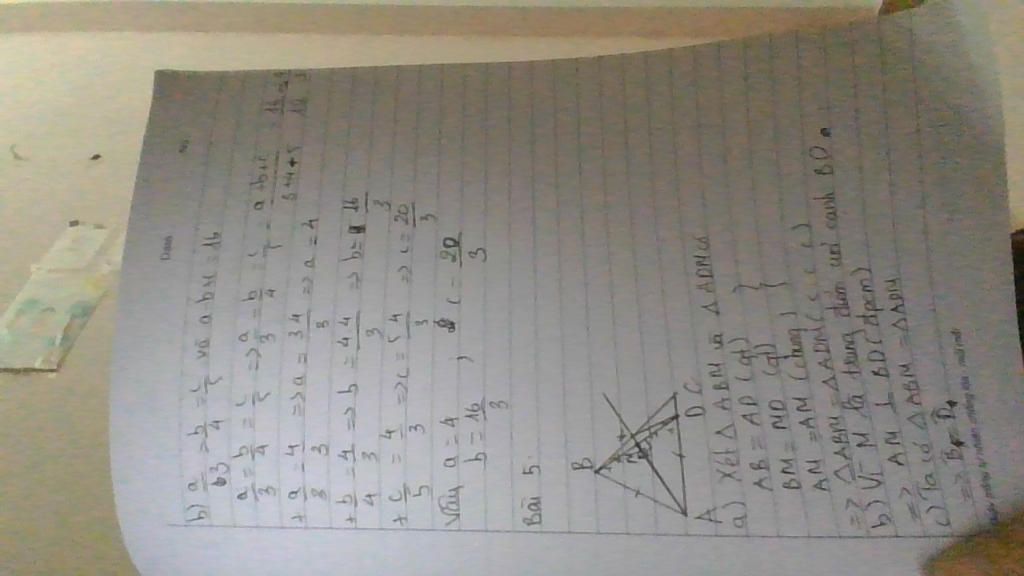 b) a/3 = b/4 = c/5 và a+b+c = 16
a/3 = b/4 = c/5 => a/3 = b/4 = c/5 = a+b+c/3+4+5 = 16/12 = 4/3
+ a/3 = 4/3 => a = 3.4/3 => a = 4
+ b/4 = 4/3 => b = 4.4/3 => b = 16/3
+ c/5 = 4/3 => c = 5.4/3 => c = 20/3
Vậy a = 4 ; c = 20/3
b = 16/3
Bài 5:
B
M
A D C
a) Xét △ABM và △ADM có
AB = AD (gt)
BM = MD (gt)
AM = AM (chung)
=> △ABM = △ADM (c c c)
b) Vì M là trung điểm của cạnh BD
=> AM ⊥ BD (đpcm)
c) Ta có △ABM = △ADM
=> B1 = D1